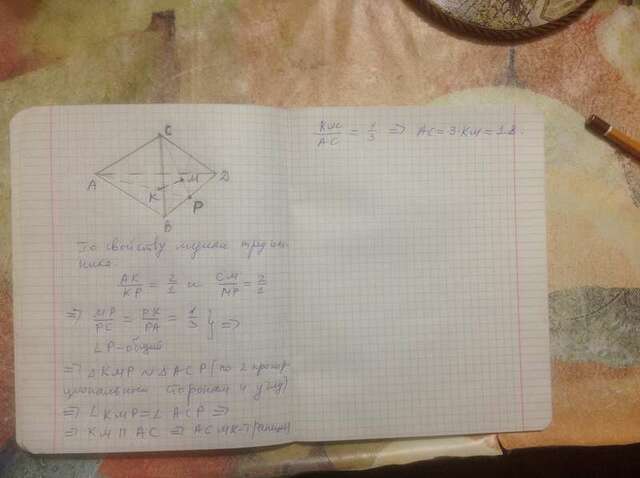 C
A
D
M
K
P
B
По свойству медиан треуголь-
ника:
AK/KP = 2/1 и CM/MP = 2/1
=> MP/PC = PK/PA = 1/3 } =>
∠P-общий
=> △KMP ~ △ACP (по 2 пропор
циональным сторонам и углу)
=> ∠KMP = ∠ACP =>
=> KM || AC => ACMK-трапеция
KM/AC = 1/3 => AC = 3·KM = 18.